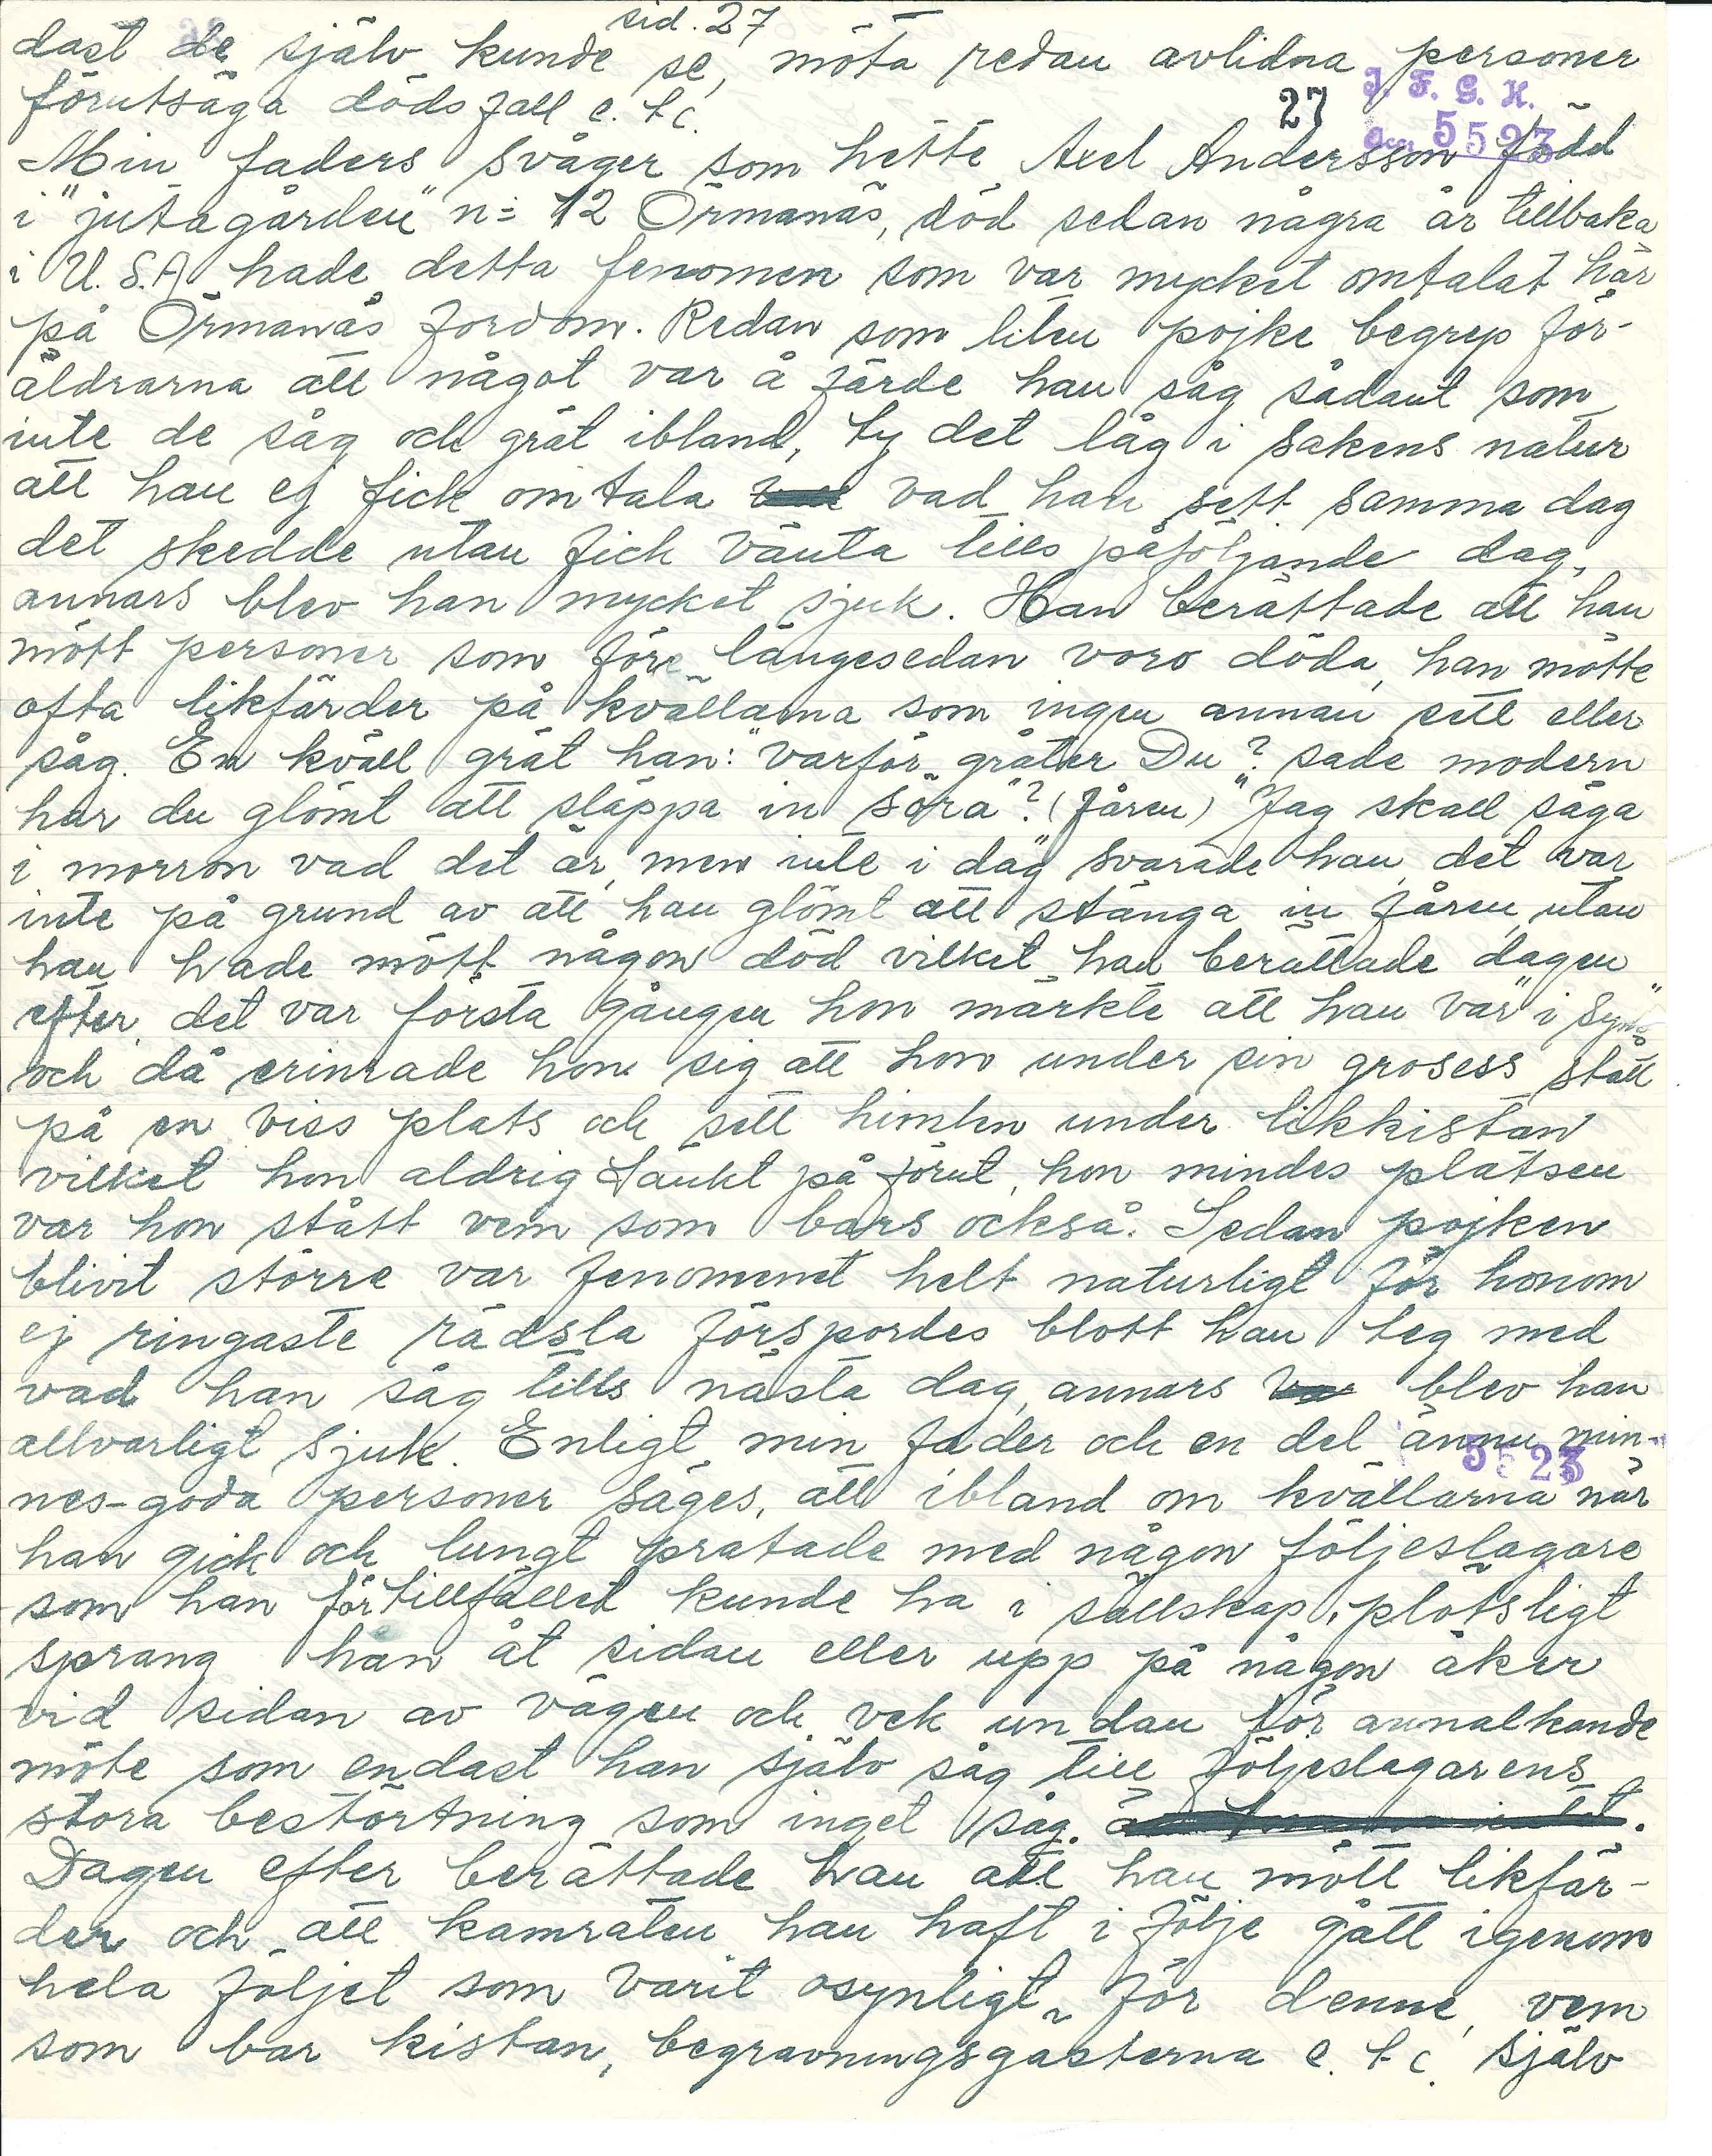 sid. 27
dast de själv kunde se, möta redan avlidna personer
förutsäga dödsfall e. t c.
27
I. F. G. H.
Acc. 5523
Min faders svåger som hette Axel Andersson född
i "jutagården" n:= 12 Örmanäs, död sedan några år tillbaka
i U. S. A hade detta fenomen som var mycket omtalat här
på Örmanäs fordom. Redan som liten pojke begrep för-
äldrarna att något var å färde han såg sådant som
inte de såg och grät ibland, ty det låg i sakens natur
att han ej fick omtala vad han sett samma dag
det skedde utan fick vänta tills påföljande dag,
annars blev han mycket sjuk. Han berättade att han
mött personer som före längesedan voro döda, han mötte
ofta likfärder på kvällarna som ingen annan sett eller
såg. En kväll grät han: "varför gråter Du"? sade modern
har du glömt att släppa in "sora"? (fåren) "Jag skall säga
i morron vad det är, men inte i dag" svarade han, det var
inte på grund av att han glömt att stänga in fåren, utan
han hade mött någon död vilket han berättade dagen
efter, det var första gången hon märkte att han var "i
och då erinrade hon sig att hon under sin grosess stått
på en viss plats och sett himlen under likkistan
vilket hon aldrig tänkt på förut, hon mindes platsen
var hon stått vem som bars också. Sedan pojken
blivit större var fenomenet helt naturligt för honom
ej ringaste rädsla förspordes blott han teg med
vad han såg tills nästa dag, annars blev han
allvarligt sjuk. Enligt min fader och en del ännu min-
5523
nes-goda personer säges, att ibland om kvällarna när
han gick och lungt pratade med någon följeslagare
som han för tillfället kunde ha i sällskap, plötsligt
sprang han åt sidan eller upp på någon åker
vid sidan av vägen och vek undan för annalkande
möte som endast han själv såg till följeslagarens
stora bestörtning som inget såg.
Dagen efter berättade han att han mött likfär-
der och att kamraten han haft i följe gått igenom
hela följet som varit osynligt för denne, vem
som bar kistan, begravningsgästerna e. t c. själv